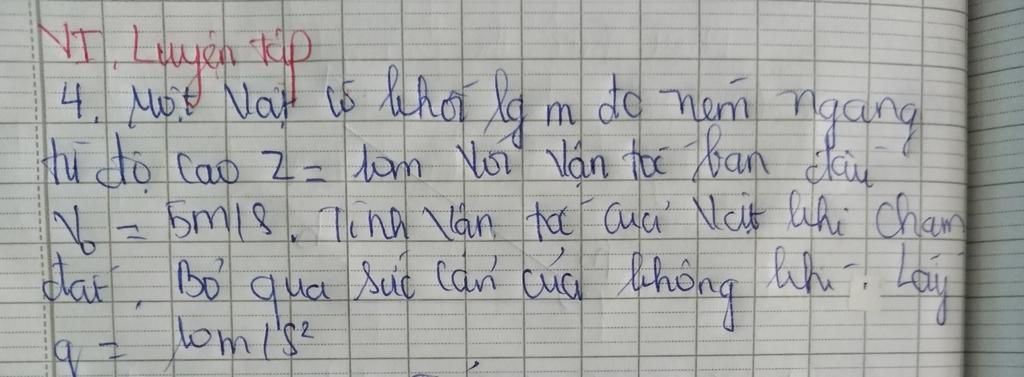 VI. Luyện tập
4. Một vật có khối lg m đc ném ngang
từ độ cao z = 10m với vận tốc ban đầu
V₀ = 5m/s. Tính vận tốc của vật khi chạm
đất. Bỏ qua sức cản của không khí. Lấy
g = 10m/s²